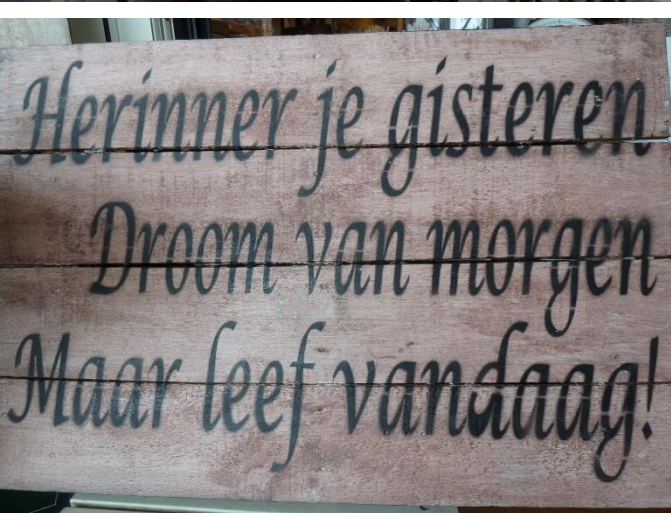 Herinner je gisteren
Droom van morgen
Maar leef vandaag!